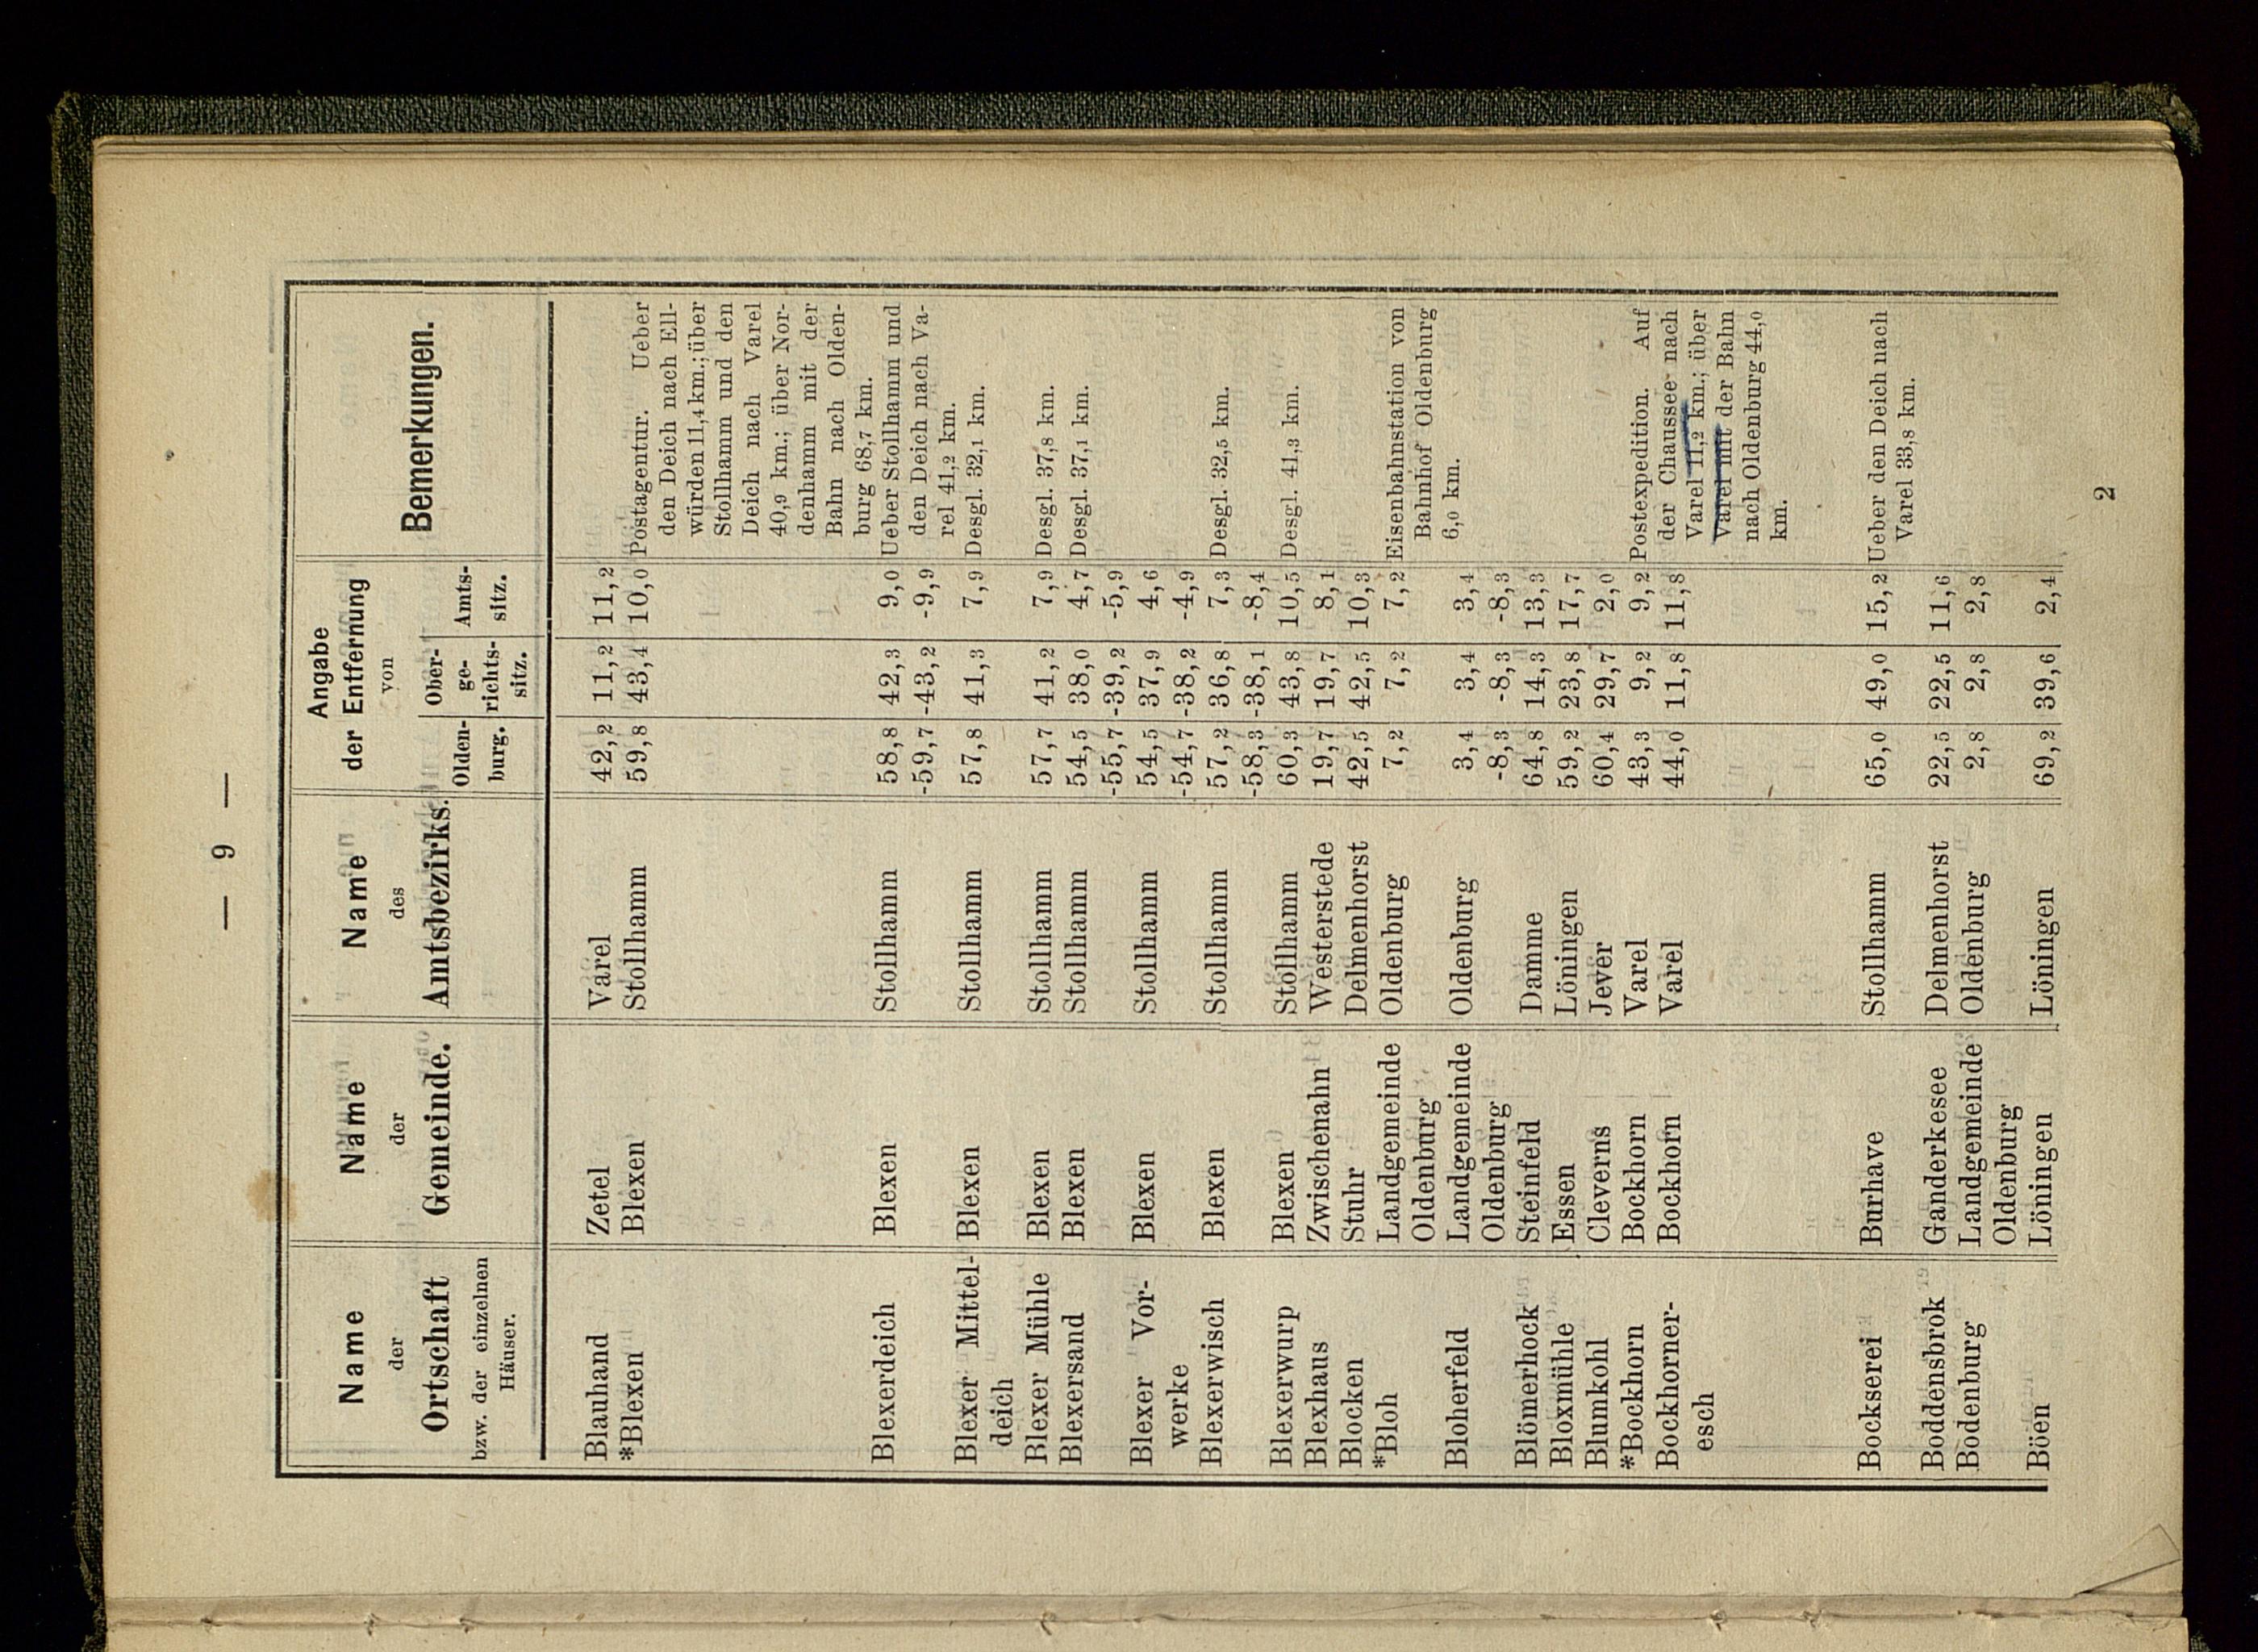 — 9 —
Name der Ortschaft bzw. der einzelnen Häuser. | Name der Gemeinde. | Name des Amtsbezirks. | Angabe der Entfernung von Olden-burg. | Ober-ge-richts-sitz. | Amts-sitz. | Bemerkungen.
Blauhand Zetel Varel 42,2 11,2 11,2
*Blexen Blexen Stollhamm 59,8 43,4 10,0 Postagentur. Ueber
den Deich nach Ell-
würden 11,4 km.; über
Stollhamm und den
Deich nach Varel
40,9 km.; über Nor-
denhamm mit der
Bahn nach Olden-
burg 68,7 km.
Blexerdeich Blexen Stollhamm 58,8 42,3 9,0 Ueber Stollhamm und
-59,7 -43,2 -9,9 den Deich nach Va-
rel 41,2 km.
Blexer Mittel- Blexen Stollhamm 57,8 41,3 7,9 Desgl. 32,1 km.
deich
Blexer Mühle Blexen Stollhamm 57,7 41,2 7,9 Desgl. 37,8 km.
Blexersand Blexen Stollhamm 54,5 38,0 4,7 Desgl. 37,1 km.
-55,7 -39,2 -5,9
Blexer Vor- Blexen Stollhamm 54,5 37,9 4,6
werke -54,7 -38,2 -4,9
Blexerwisch Blexen Stollhamm 57,2 36,8 7,3 Desgl. 32,5 km.
-58,3 -38,1 -8,4
Blexerwurp Blexen Stollhamm 60,3 43,8 10,5 Desgl. 41,3 km.
Blexhaus Zwischenahn Westerstede 19,7 19,7 8,1
Blocken Stuhr Delmenhorst 42,5 42,5 10,3
*Bloh Landgemeinde Oldenburg 7,2 7,2 7,2 Eisenbahnstation von
Oldenburg Bahnhof Oldenburg
6,0 km.
Bloherfeld Landgemeinde Oldenburg 3,4 3,4 3,4
Oldenburg -8,3 -8,3 -8,3
Blömerhock Steinfeld Damme 64,8 14,3 13,3
Bloxmühle Essen Löningen 59,2 23,8 17,7
Blumkohl Cleverns Jever 60,4 29,7 2,0
*Bockhorn Bockhorn Varel 43,3 9,2 9,2 Postexpedition. Auf
der Chaussee nach
Bockhorner- Bockhorn Varel 44,0 11,8 11,8
esch
Varel 11,2 km.; über
Varel mit der Bahn
nach Oldenburg 44,0
km.
Bockserei Burhave Stollhamm 65,0 49,0 15,2 Ueber den Deich nach
Varel 33,8 km.
Boddensbrok Ganderkesee Delmenhorst 22,5 22,5 11,6
Bodenburg Landgemeinde Oldenburg 2,8 2,8 2,8
Oldenburg
Böen Löningen Löningen 69,2 39,6 2,4
2